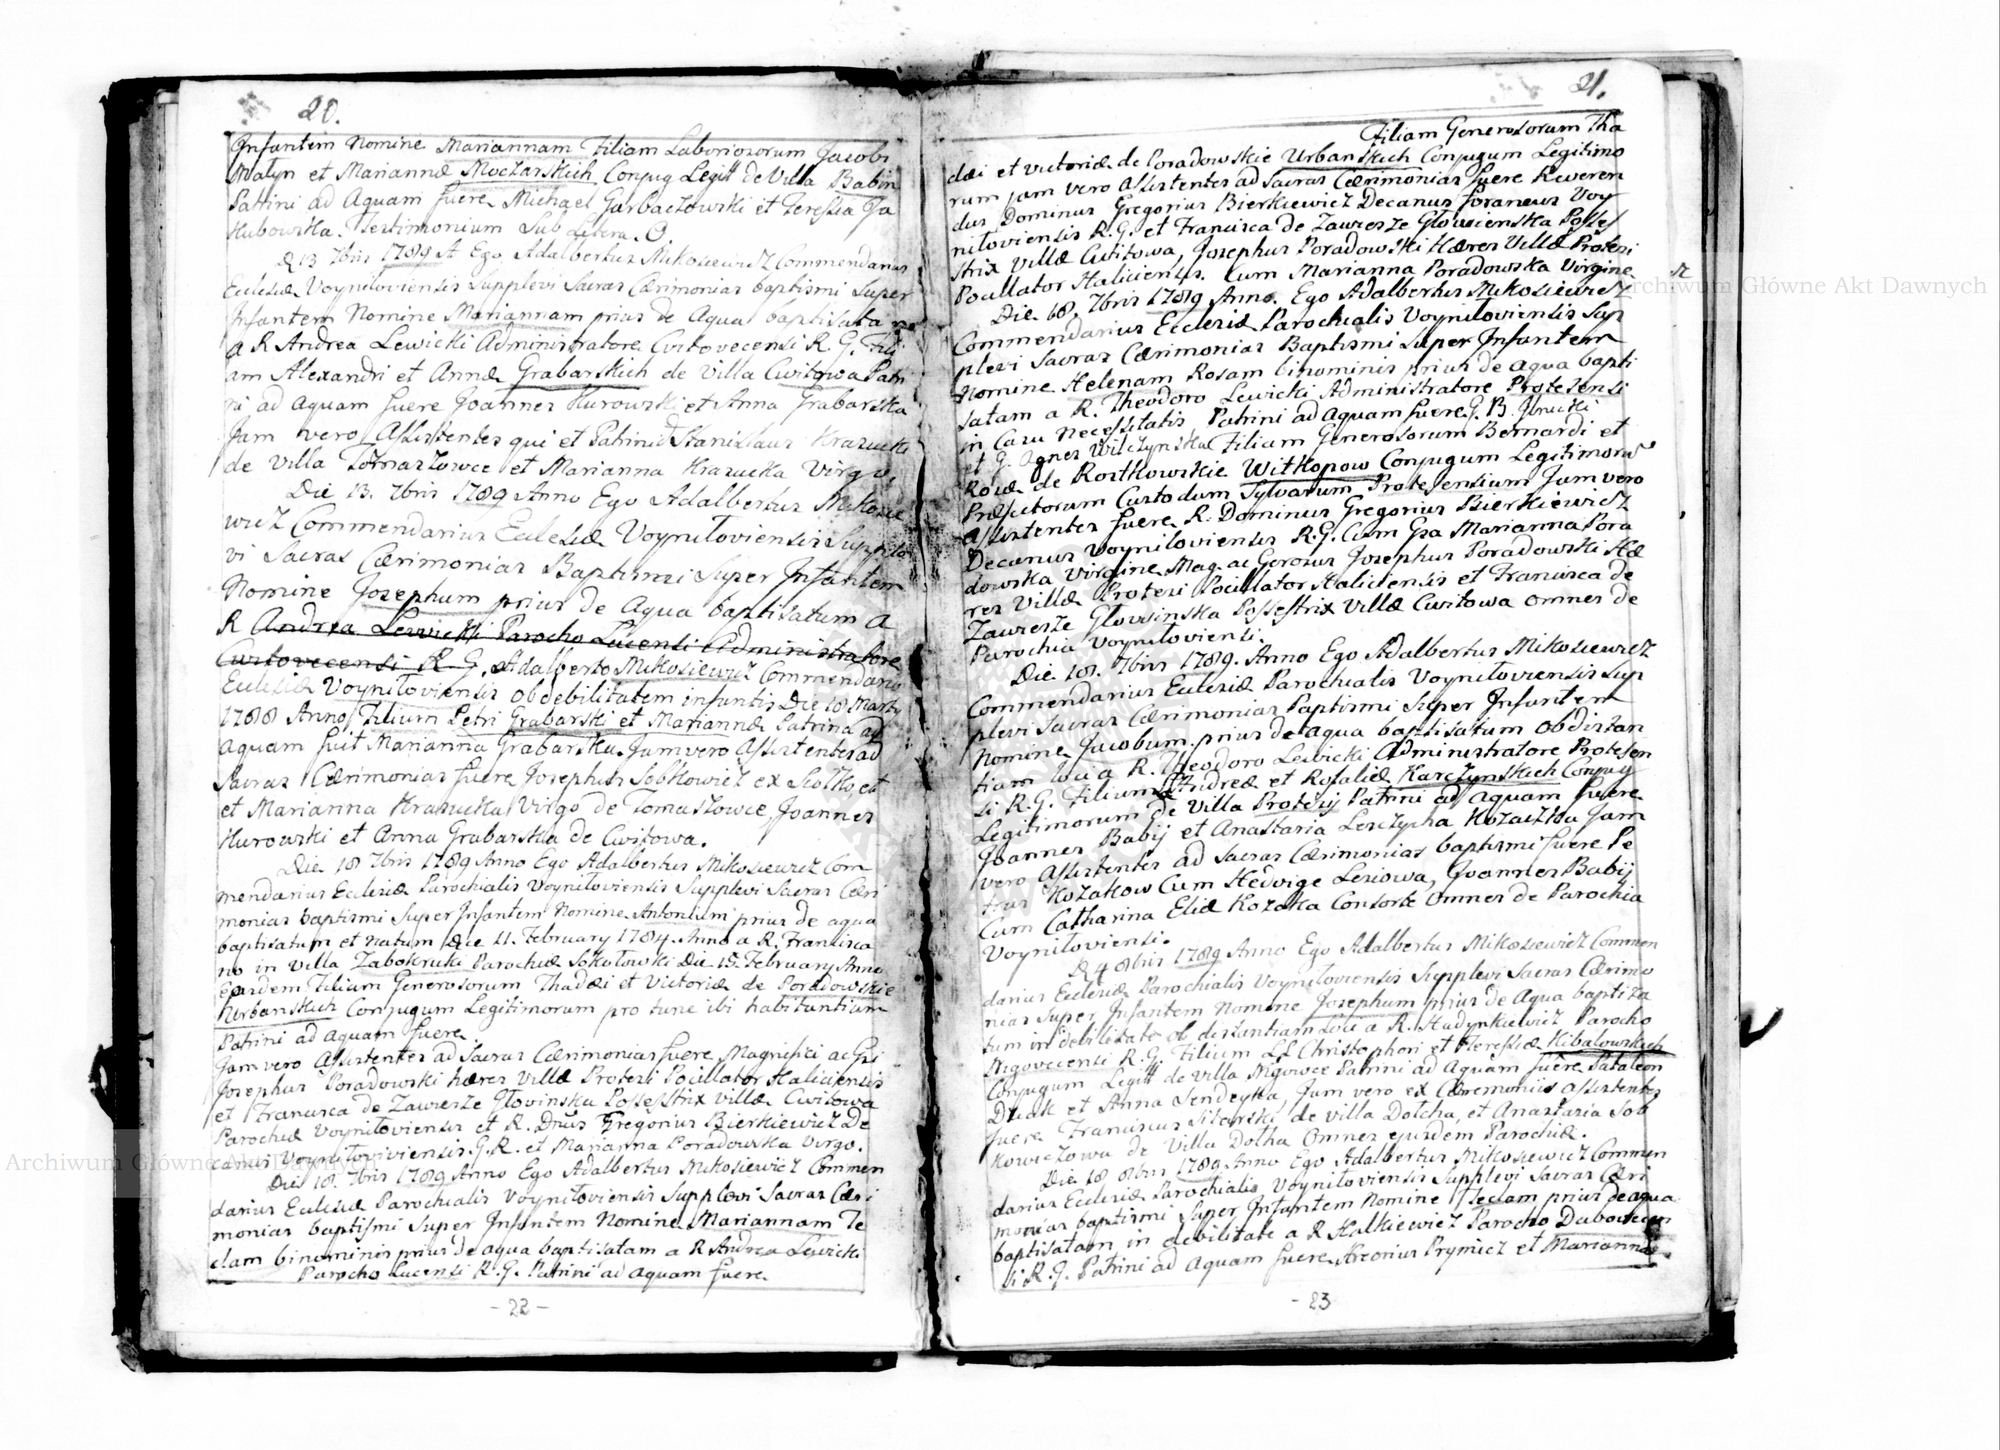 20.
Infantem Nomine Mariannam Filiam Laboriosorum Jacobi
Matyn et Mariannæ Moczarskich Conjug Legitt de Villa Babin
Patrini ad Aquam fuere Michael Garbaczowski et Teressia Ja
kubowska. Testimonium Sub Litera. O
D 13 7bris 1789 A Ego Adalbertus Mikosiewicz Commendarius
Ecclesiæ Voyniloviensis Supplevi Sacras Cærimonias baptismi Super
Infantem Nomine Mariannam prius de Aqua baptisata
a R Andrea Lewicki Administratore Cvitovecensi R. G. Fili
am Alexandri et Annæ Grabarskich de Villa Cwitowa Patri
ni ad Aquam fuere Joannes Kurowski et Anna Grabarska
Jam vero Assistentes qui et Patrini Stanislaus Krasucki
de Villa Tomaszowce et Marianna Krasucka Virgo.
Die 13. 7bris 1789 Anno Ego Adalbertus Mikosie
wicz Commendarius Ecclesiæ Voyniloviensis Supple
vi Sacras Cærimonias Baptismi Super Infantem
Nomine Josephum prius de Aqua baptisatum a
R Andrea Lewicki Parocho Lucensi Administratore
Cvitovecensi R. G. Adalberto Mikosiewicz Commendario
Ecclesiæ Voyniloviensis ob debilitatem infantis Die 18 Marty
1788 Anno Filium Petri Grabarski et Mariannæ Patrina ad
Aquam fuit Marianna Grabarska. Jam vero Assistentes ad
Sacras Cærimonias fuere Josephus Sobkowicz ex
et Marianna Krasucka Virgo de Tomaszowce, Joannes
Kurowski et Anna Grabarska de Cwitowa.
Die 18 7bris 1789 Anno Ego Adalbertus Mikosiewicz Com
mendarius Ecclesiæ Parochialis Voyniloviensis Supplevi Sacras Cæri
monias baptismi Super Infantem Nomine Antonium prius de aqua
baptisatum et natum die 11. February 1784. Anno a R. Francisca
no in Villa Zabokruki Parochiæ Sokolowski Die 15. February Anno
Eardem Filium Generosorum Thadæi et Victoriæ de Poradowskie
Urbanskich Conjugum Legitimorum pro tunc ibi habitantium
Patrini ad aquam fuere
Jam vero Assistentes ad Sacras Cærimonias fuere Magnifici ac Gsi
Josephus Poradowski hæres Villæ Protesi Pocillator Haliciensis
et Francisca de Zawiesze Glovinska Possestrix villæ Cwitowa
Parochiæ Voyniloviensis et R. Dnus Gregorius Bierkiewicz De
canus Voyniloviviensis. G. R. et Marianna Poradowska Virgo.
Die 18. 7bris 1789 Anno Ego Adalbertus Mikosiewicz Commen
darius Ecclesiæ Parochialis Voyniloviensis Supplevi Sacras Cæri
monias baptismi Super Infantem Nomine Mariannam Te
clam binominis prius de aqua baptisatam a R Andrea Lewicki
Parocho Lucensi R. G. Patrini ad Aquam fuere
- 22 -
21.
Filiam Generosorum Tha
dæi et Victoriæ de Poradowskie Urbanskich Conjugum Legitimo
rum jam vero Assistentes ad Sacras Cærimonias fuere Reveren
dus Dominus Gregorius Bierkiewicz Decanus foraneus Voy
niloviensis R. G. et Francisca de Zawiesze Glowienska Posse
strix villæ Cwitowa, Josephus Poradowski Hæres Villæ Protesi
Pocillator Haliciensis. Cum Marianna Poradowska Virgine
Die 18. 7bris 1789 Anno. Ego Adalbertus Mikosiewicz
Commendarius Ecclesiæ Parochialis Voyniloviensis Sup
plevi Sacras Cærimonias Baptismi Super Infantem
Nomine Helenam Rosam binominis prius de aqua bapti
satam a R. Theodoro Lewicki Administratore Protesensi
in Casu Necessitatis Patrini ad Aquam fuere G. B. Ilnicki
et G. Agnes Wilczynska Filiam Generosorum Bernardi et
Rosæ de Rostkowskie Witkopow Conjugum Legitimorū
Præfectorum Custodum Sylvarum Protesensium Jam vero
Assistentes fuere R. Dominus Gregorius Bierkiewicz
Decanus Voyniloviensis R. G. Cum Gsa Marianna Pora
dowska Virgine Mag. ac Gerosus Josephus Poradowski Hæ
res Villæ Protesi Pocillator Haliciensis et Francisca de
Zawiesze Glovinska Possestrix Villæ Cwitowa omnes de
Parochia Voyniloviensi.
Die 18. 7bris 1789. Anno Ego Adalbertus Mikosiewicz
Commendarius Ecclesiæ Parochialis Voyniloviensis Sup
plevi Sacras Cærimonias Baptismi Super Infantem
Nomine Jacobum prius de aqua baptisatum ob distan
tiam loci a R. Theodoro Lewicki Administratore Protesen
si R. G. Filium Andreæ et Rosaliæ Karczynskich Conjug
Legitimorum de Villa Protesy Patrini ad Aquam fuere
Joannes Babij et Anastasia Leszczycha Kozaczka Jam
vero Assistentes ad Sacras Cærimonias baptismi fuere Pe
trus Kozakow Cum Hedvige Lesiowa, Joannes Babij
Cum Catharina Eliæ Kozaka Consorte omnes de Parochia
Voyniloviensi.
D 4 8bris 1789 Anno Ego Adalbertus Mikosiewicz Commen
darius Ecclesiæ Parochialis Voyniloviensis Supplevi Sacras Cærimo
nias Super Infantem Nomine Josephum prius de Aqua baptiza
tum in debilitate ob distantiam loci a R. Hadynkiewicz Parocho
Nigovecensi R. G. Filium LL Christophori et Teressiæ Kibalowskich
Conjugum Legitt de Villa Nigowce Patrini ad Aquam fuere Pataleon
Diak et Anna Lendeyka, Jam vero ex Cæremoniis assistentes
fuere Franciscus Sikorski de villa Dolcha, et Anastasia Sob
kowiczowa de Villa Dolha Omnes ejusdem Parochiæ.
Die 18 8bris 1789 Anno Ego Adalbertus Mikosiewicz Commen
darius Ecclesiæ Parochialis Voyniloviensis Supplevi Sacras Cæri
monias baptismi Super Infantem Nomine Teclam prius de aqua
baptisatam in debilitate a R Halkiewicz Parocho Dubovecen
si R. G. Patrini ad Aquam fuere Prymicz et Marianna
- 23
Archiwum Główne Akt Dawnych
Archiwum Główne Akt Dawnych